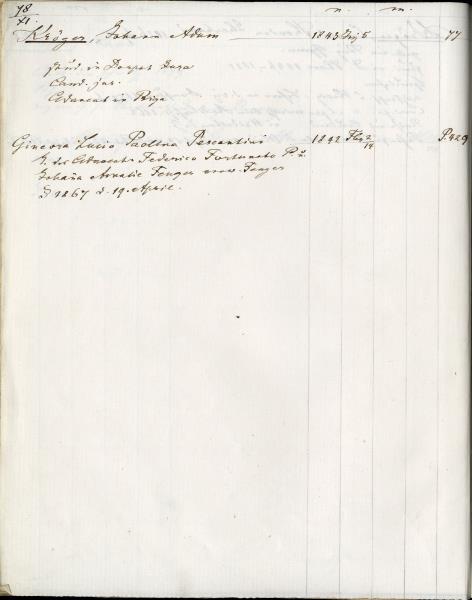 78
XI.
n. m.
Kröger, Johann Adam 1843 5 77
stud. in Dorpat Jura
Cand. jur.
Advocat in Riga
Ginevra Lucio Paolina Pescantini 1842 2/14 P. 429
T. des Advocat Federico Fortunato P. u.
Johaña Amalie Fenger
1867 d. 19. April.